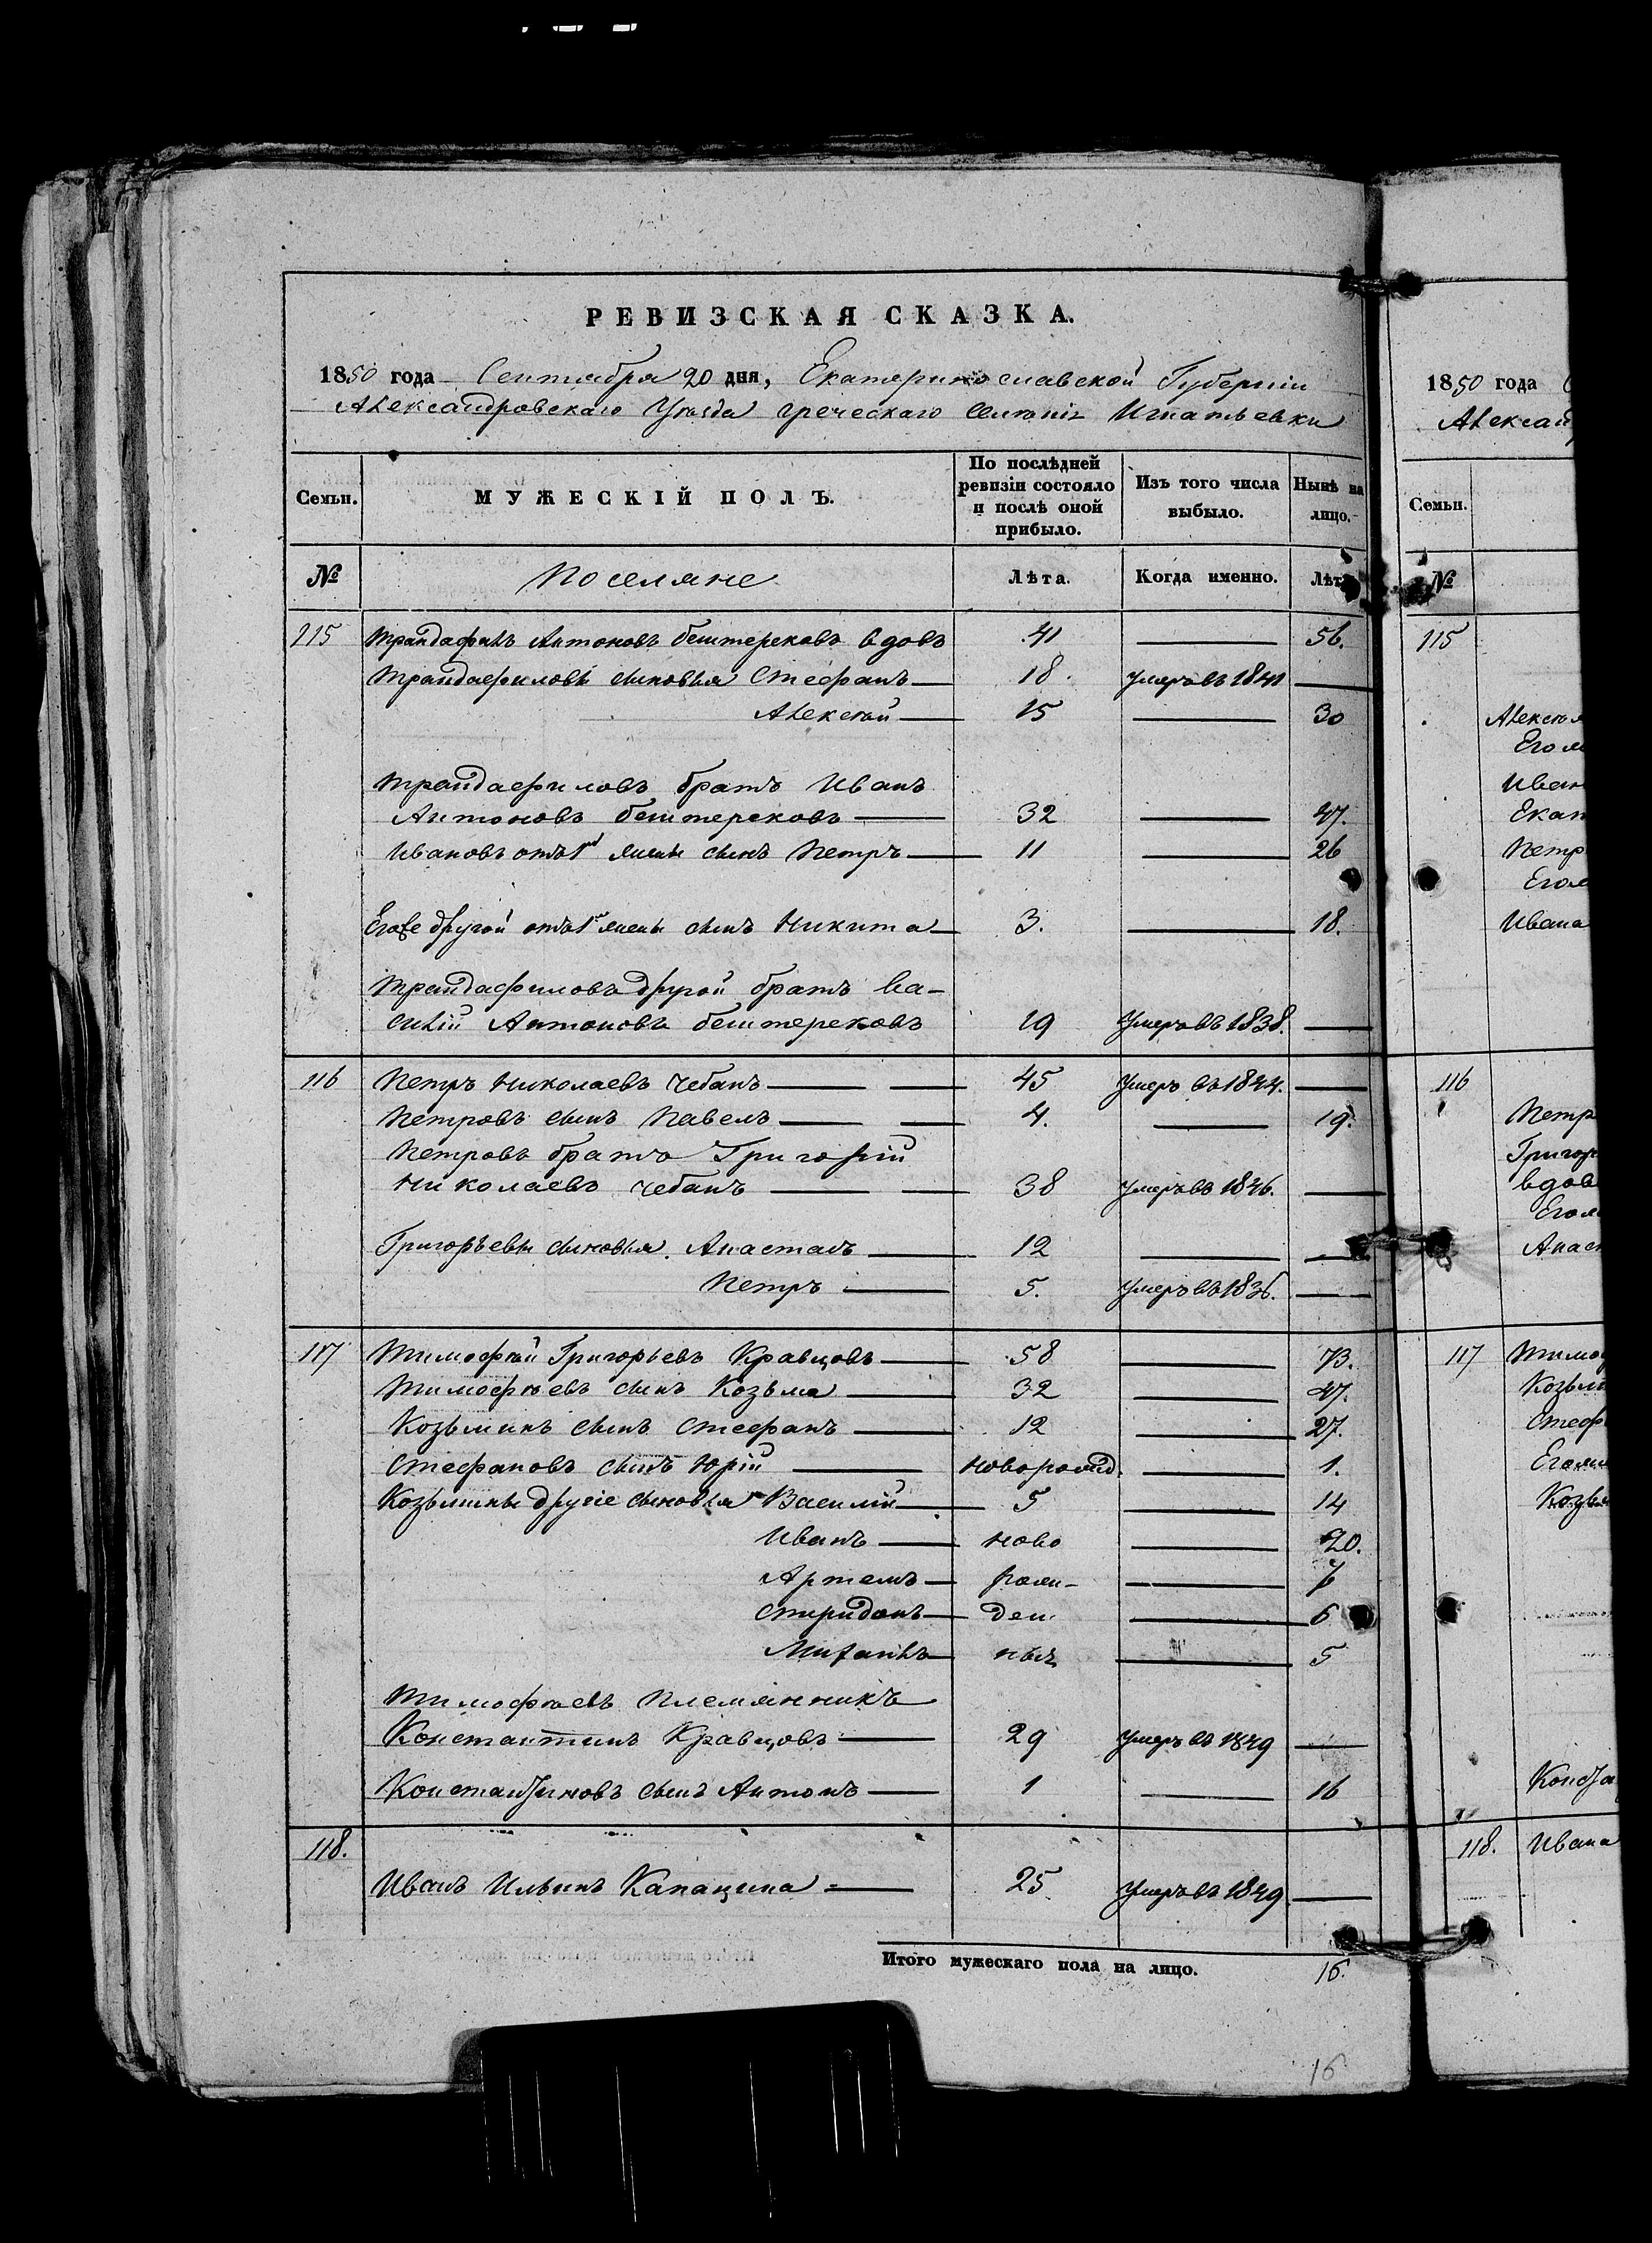 РЕВИЗСКАЯ СКАЗКА.
1850 года Сентября 20 дня, Екатеринославской Губерніи
Александровскаго Уѣзда греческаго селенія Игнатьевки
Семьи. МУЖЕСКІЙ ПОЛЪ. По послѣдней ревизіи состояло и послѣ оной прибыло. Изъ того числа выбыло. Нынѣ на лицо.
№ Поселяне Лѣта. Когда именно. Лѣта
115 Трандафилъ Антоновъ Бештерековъ вдовъ 41 — 56.
Трандафиловы сыновья Стефанъ 18. умеръ въ 1841 —
Алексѣй 15 — 30
Трандафиловъ братъ Иванъ
Антоновъ Бештерековъ 32 — 47.
Ивановъ отъ 1й жены сынъ Петръ 11 — 26
Его же другой отъ 1й жены сынъ Никита 3. — 18.
Трандафиловъ другой братъ Ва-
силій Антоновъ Бештерековъ 19 умеръ въ 1838. —
116 Петръ Николаевъ Чебанъ 45 умеръ въ 1844. —
Петровъ сынъ Павелъ 4. — 19.
Петровъ братъ Григорій
Николаевъ Чебанъ 38 умеръ въ 1846. —
Григорьевы сыновья. Анастасъ 12 — —
Петръ 5. умеръ въ 1836. —
117 Тимофѣй Григорьевъ Кравцовъ 58 — 73.
Тимофѣевъ сынъ Козьма 32 — 47.
Козьминъ сынъ Стефанъ 12 — 27.
Стефановъ сынъ Юрій новорожд. — 1.
Козьмины другіе сыновья Василій 5 — 14
Иванъ ново — 20.
Артемъ рож- — 7
Спиридонъ ден — 6
Михаилъ ныя — 5
Тимофѣевъ племянникъ
Константинъ Кравцовъ 29 умеръ въ 1849 —
Константиновъ сынъ Антонъ 1 — 16
118. Иванъ Ильинъ Капацина 25 умеръ въ 1849 —
Итого мужескаго пола на лицо. 16.
16
1850 года
Александ
Семьи.
№
115
Алексѣ
Его
Иван
Екат
Петр
Его
Ивана
116
Петр
Григор
вдов
Его
Анаст
117 Тимоф
Козьм
Стеф
Его
Козьм
Конста
118. Ивана